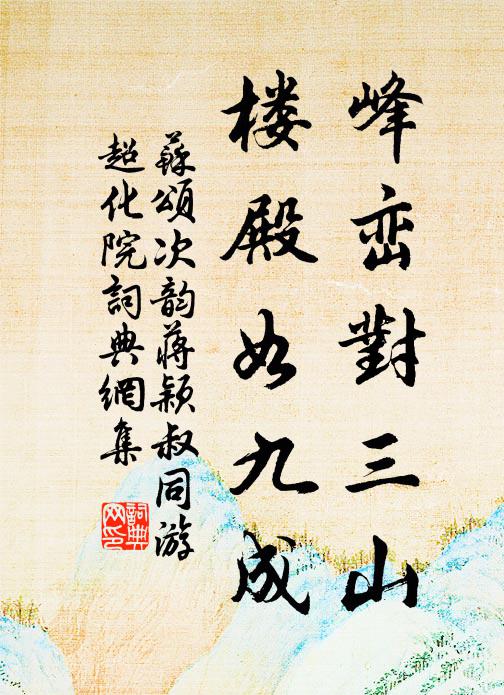 峰峦對三山
楼殿如九成
蘇頌次韵蔣颖叔同游
超化院詞典網集
詞典网印